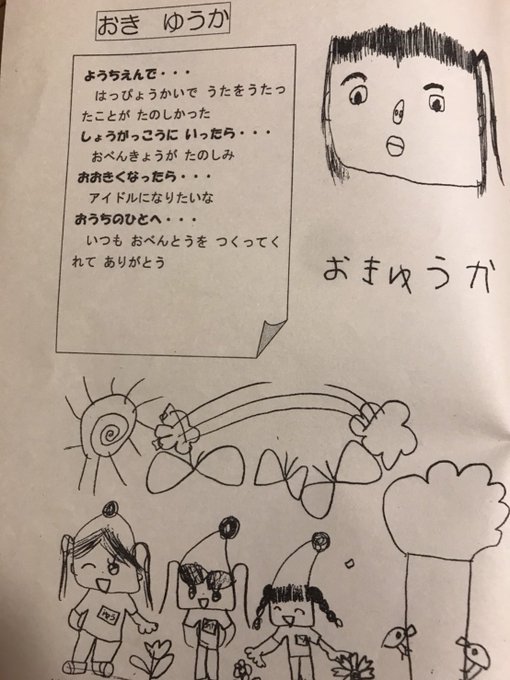 おき ゆうか
ようちえんで・・・
はっぴょうかいで うたをうたっ
たことが たのしかった
しょうがっこうに いったら・・・
おべんきょうが たのしみ
おおきくなったら・・・
アイドルになりたいな
おうちのひとへ・・・
いつも おべんとうを つくってく
れて ありがとう
おきゆうか